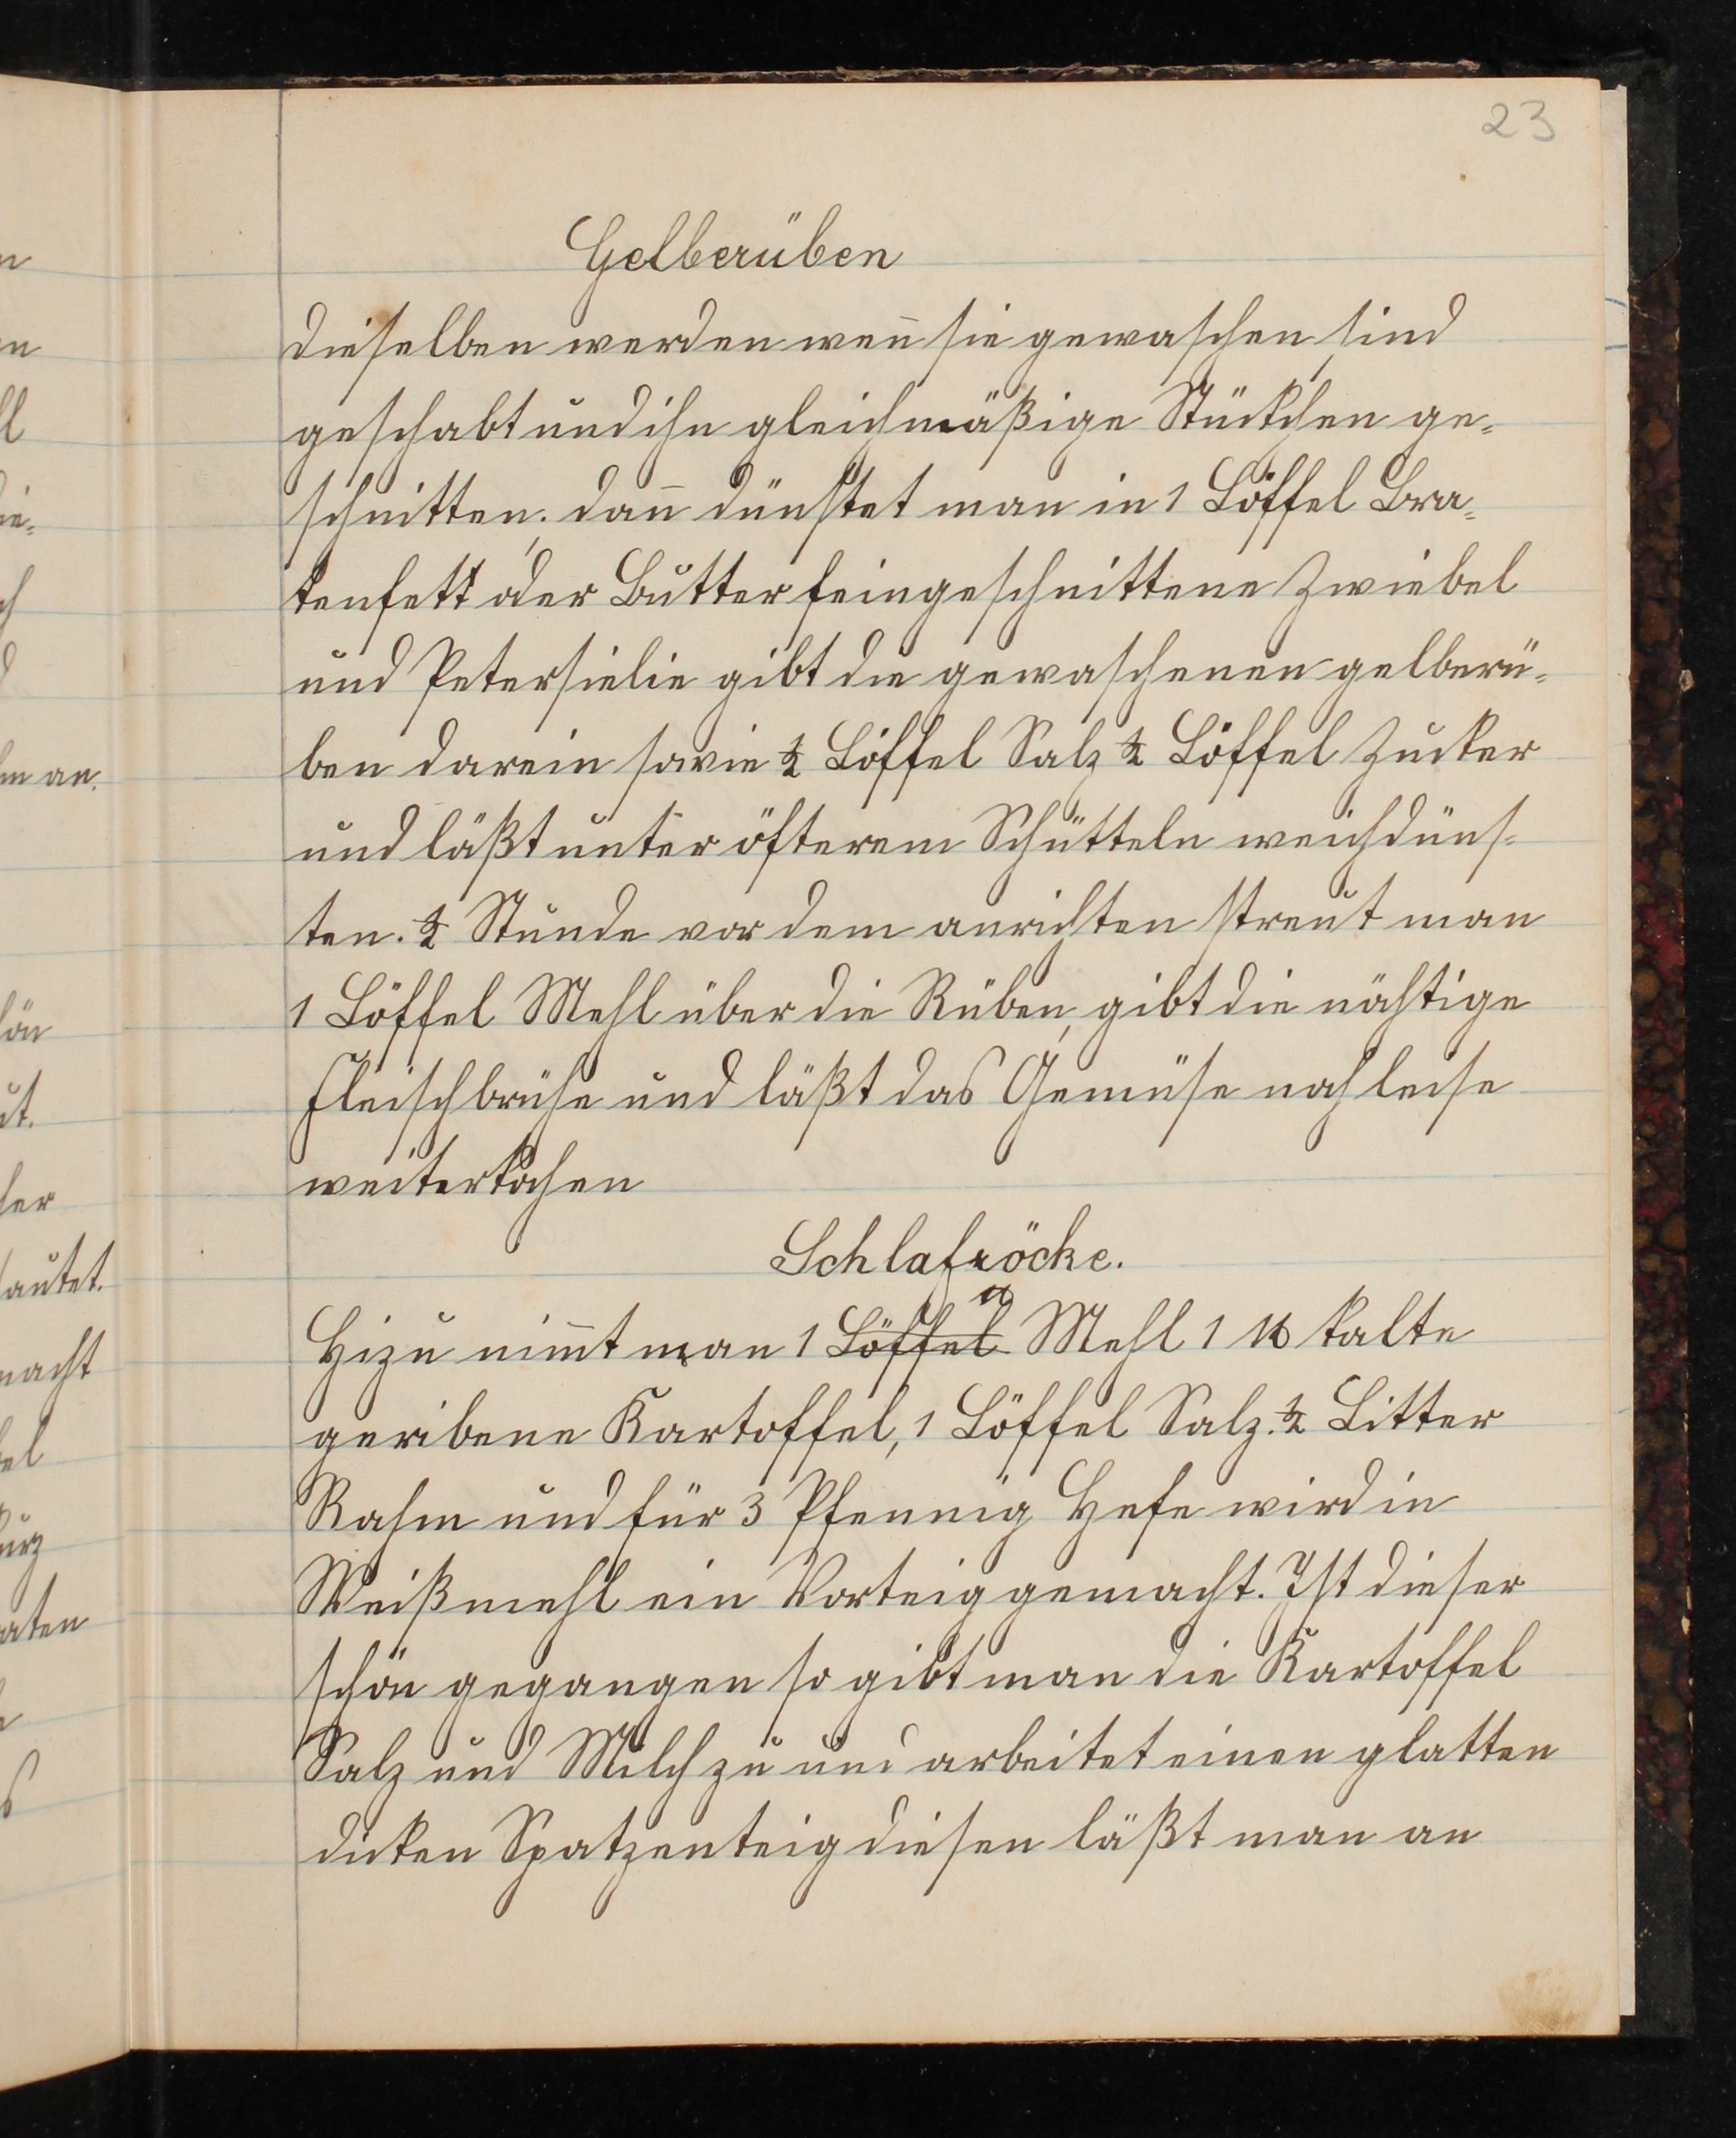 23
Gelberüben
dieselben werden wen̄ sie gewaschen sind
geschabt und ihn gleichmäßige Stückchen ge=
schnitten, dan̄ dünstet man in 1 Löffel Bra=
tenfett oder Butter feingeschnittene Zwiebel
und Petersielie gibt die gewaschenen gelberü=
ben darein sowie ½ Löffel Salz ½ Löffel Zucker
und läßt unter öfterem Schütteln weichdüns=
ten. ½ Stunde vor dem anrichten streut man
1 Löffel Mehl über die Rüben, gibt die nöhtige
Fleischbrühe und läßt das Gemüse noch leise
weiterkochen
Schlafröcke.
Hizu nim̄t man 1 Löffel ℔ Mehl 1 ℔ kalte
geribene Kartoffel, 1 Löffel Salz. ½ Litter
Rahm und für 3 Pfennig Hefe wird in
Weißmehl ein Vorteig gemacht. Ist dieser
schön gegangen so gibt man die Kartoffel
Salz und Milch zu und arbeitet einen glatten
dicken Spatzenteig diesen läßt man an